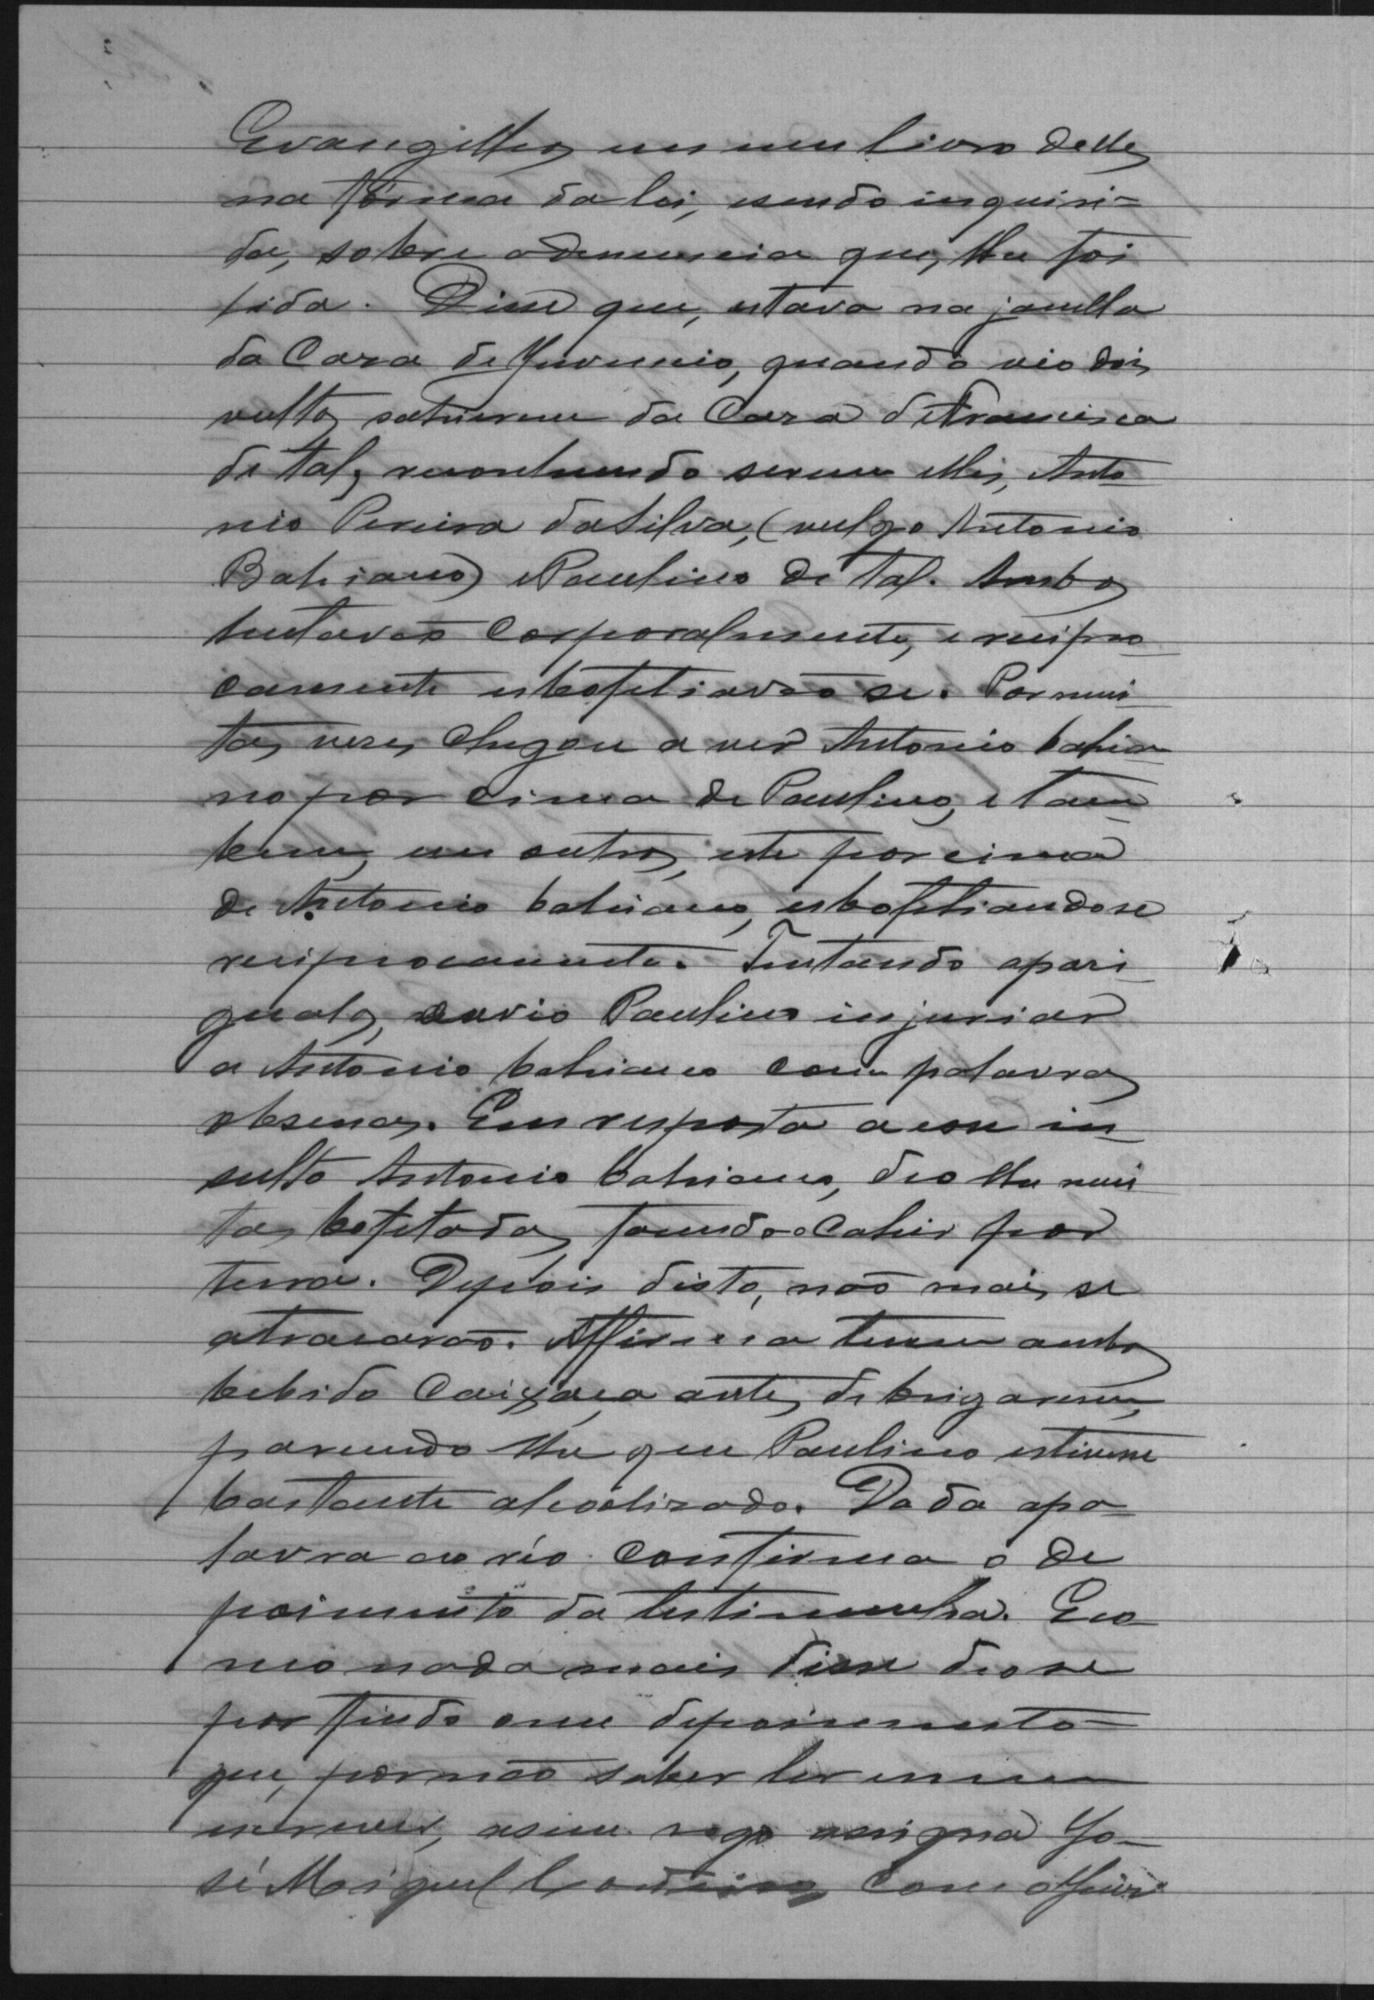 Evangelhos em um livro delles
na fórma da lei, e sendo inquiri-
da, sobre a denuncia que, lhe foi
lida. Disse que, estava na janella
da Casa de Juvencio, quando vio dois
vultos sahirem da Casa de Francisca
de tal, reconhecendo serem elles, Anto-
nio Pereira da Silva, (vulgo Antonio
Bahiano) e Paulino de tal. Ambos
luctavão corporalmente, e recipro-
camente esbofetiavão se. Por mui-
tas veses chegou a ver Antonio bahia-
no por cima de Paulino, e tam-
bem, em outros, este por cima
de Antonio bahiano, esbofetiando se
reciprocamente. Tentando apasi-
gualos, ouvio Paulino injuriar
a Antonio bahiano com palavras
obsenas. Em resposta a esse in-
sulto Antonio bahiano, deo lhe mui-
tas bofetadas, fasendo o Cahir por
terra. Depois disto, não mais se
atracarão. Affirma terem ambos
bebido Caixaça antes de brigarem,
parecendo lhe que Paulino estivesse
bastante alcoolisado. Dada a pa-
lavra ao réo confirma o de
poimento da testimunha. E co-
mo nada mais disse deo se
por findo o seu depoimento
que, por não saber ler e nem
escrever, a seu rogo assigna Jo-
sé Miguel com o Juiz